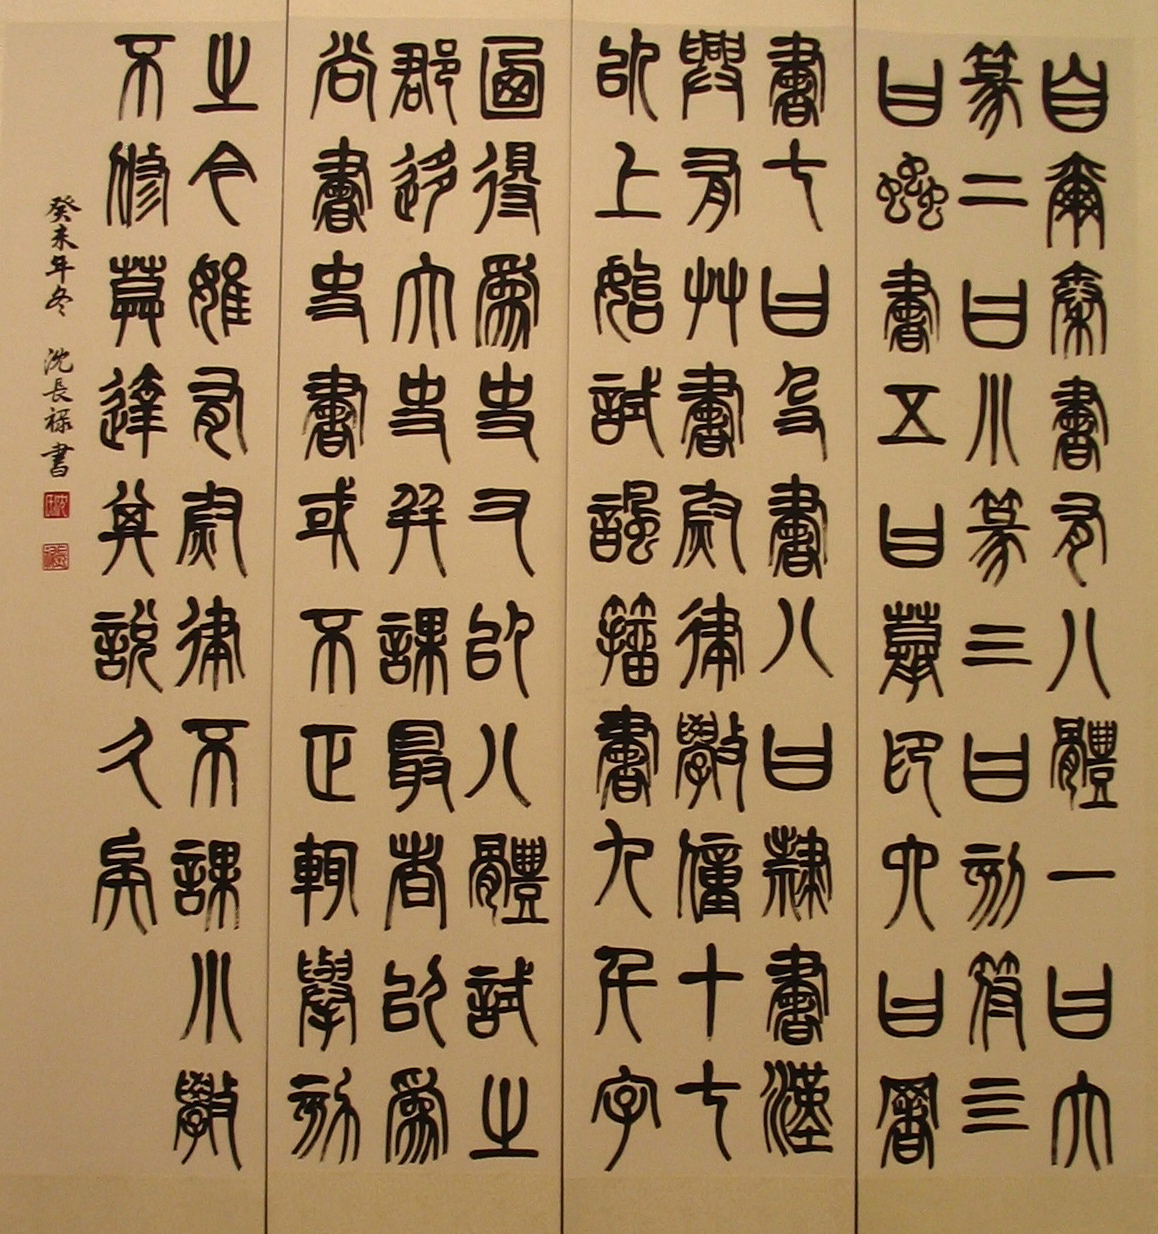 自爾秦書有八體一曰大
篆二曰小篆三曰刻符亖
曰蟲書五曰摹印六曰署
書七曰殳書八曰隸書漢
興有艸書尉律斅僮十七
以上始試諷籀書九千字
迺得為史又以八體試之
郡移大史并課最者以為
尚書史書或不正輒舉劾
之今雖有尉律不課小斅
不修莫達其說久矣
癸未年冬 沈長祿書